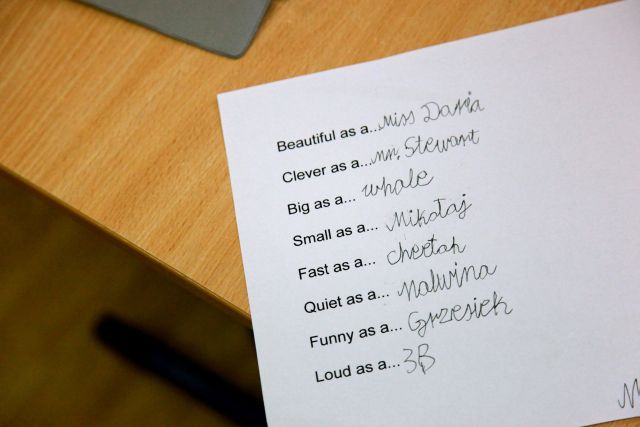 Beautiful as a...Miss Daria
Clever as a...mr. Stewart
Big as a... whale
Small as a... Mikołaj
Fast as a... cheetah
Quiet as a... Malwina
Funny as a... Grzesiek
Loud as a...3B